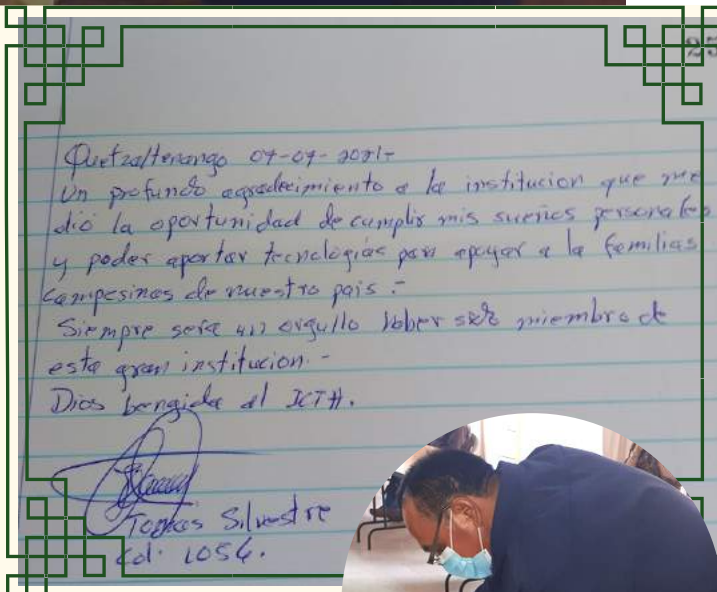 25
Quetzaltenango 07-07-2021-
Un profundo agradecimiento a la institucion que me
dió la oportunidad de cumplir mis sueños personales
y poder aportar tecnologías para apoyar a la familias
campesinas de nuestro pais.-
Siempre sera un orgullo haber sido miembro de
esta gran institucion.-
Dios bengida al ICTA.
Tomás Silvestre
Col. 1056.